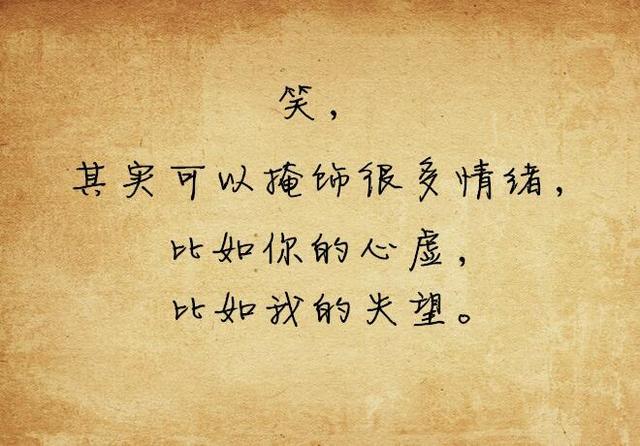 笑，
其实可以掩饰很多情绪，
比如你的心虚，
比如我的失望。